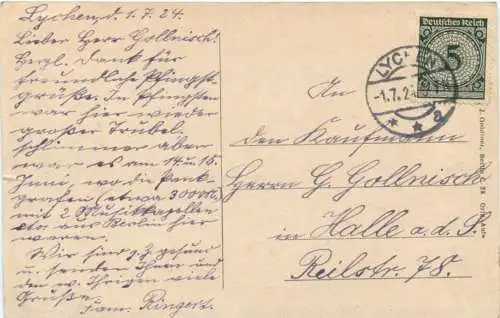 Lychen, d. 1.7.24.
Lieber Herr Gollnisch!
Herzl. Dank für
freundliche Pfingst-
grüße. In Pfingsten
war hier wieder
großer Trubel
schlimmer aber
war es am 14 u 16
Juni, wo die
grafen (etwa 300 M.)
mit 2 Musikkapellen
aus Berlin hier
waren.
Wir sind g. Z. gesund
u. senden Ihnen und
den w. Ihrigen viele
Grüße.
Fam. Ringert.
Deutsches Reich
5
LYCHEN
-1.7.24
* * a
An
den Kaufmann
Herrn G. Gollnisch
in Halle a. d. S.
Reilstr. 78.